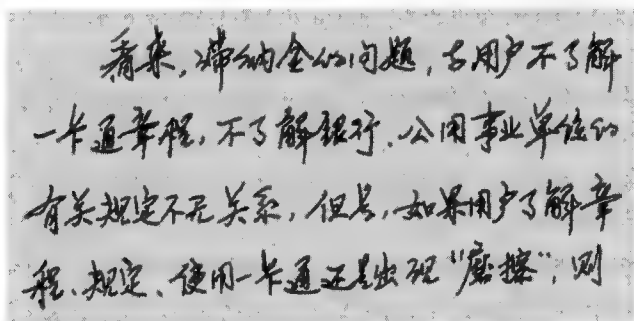 看来,滞纳金的问题,与用户不了解
一卡通章程,不了解银行、公用事业单位的
有关规定不无关系,但是,如果用户了解章
程、规定、使用一卡通还是出现“磨擦”,则